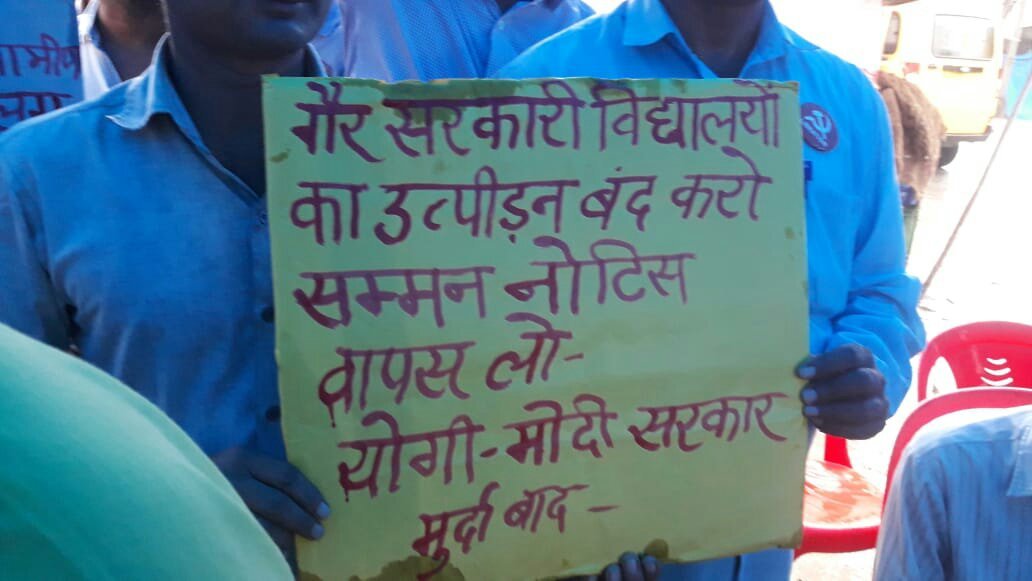 गैर सरकारी विद्यालयों
का उत्पीड़न बंद करो
सम्मन नोटिस
वापस लो-
योगी-मोदी सरकार
मुर्दा बाद-